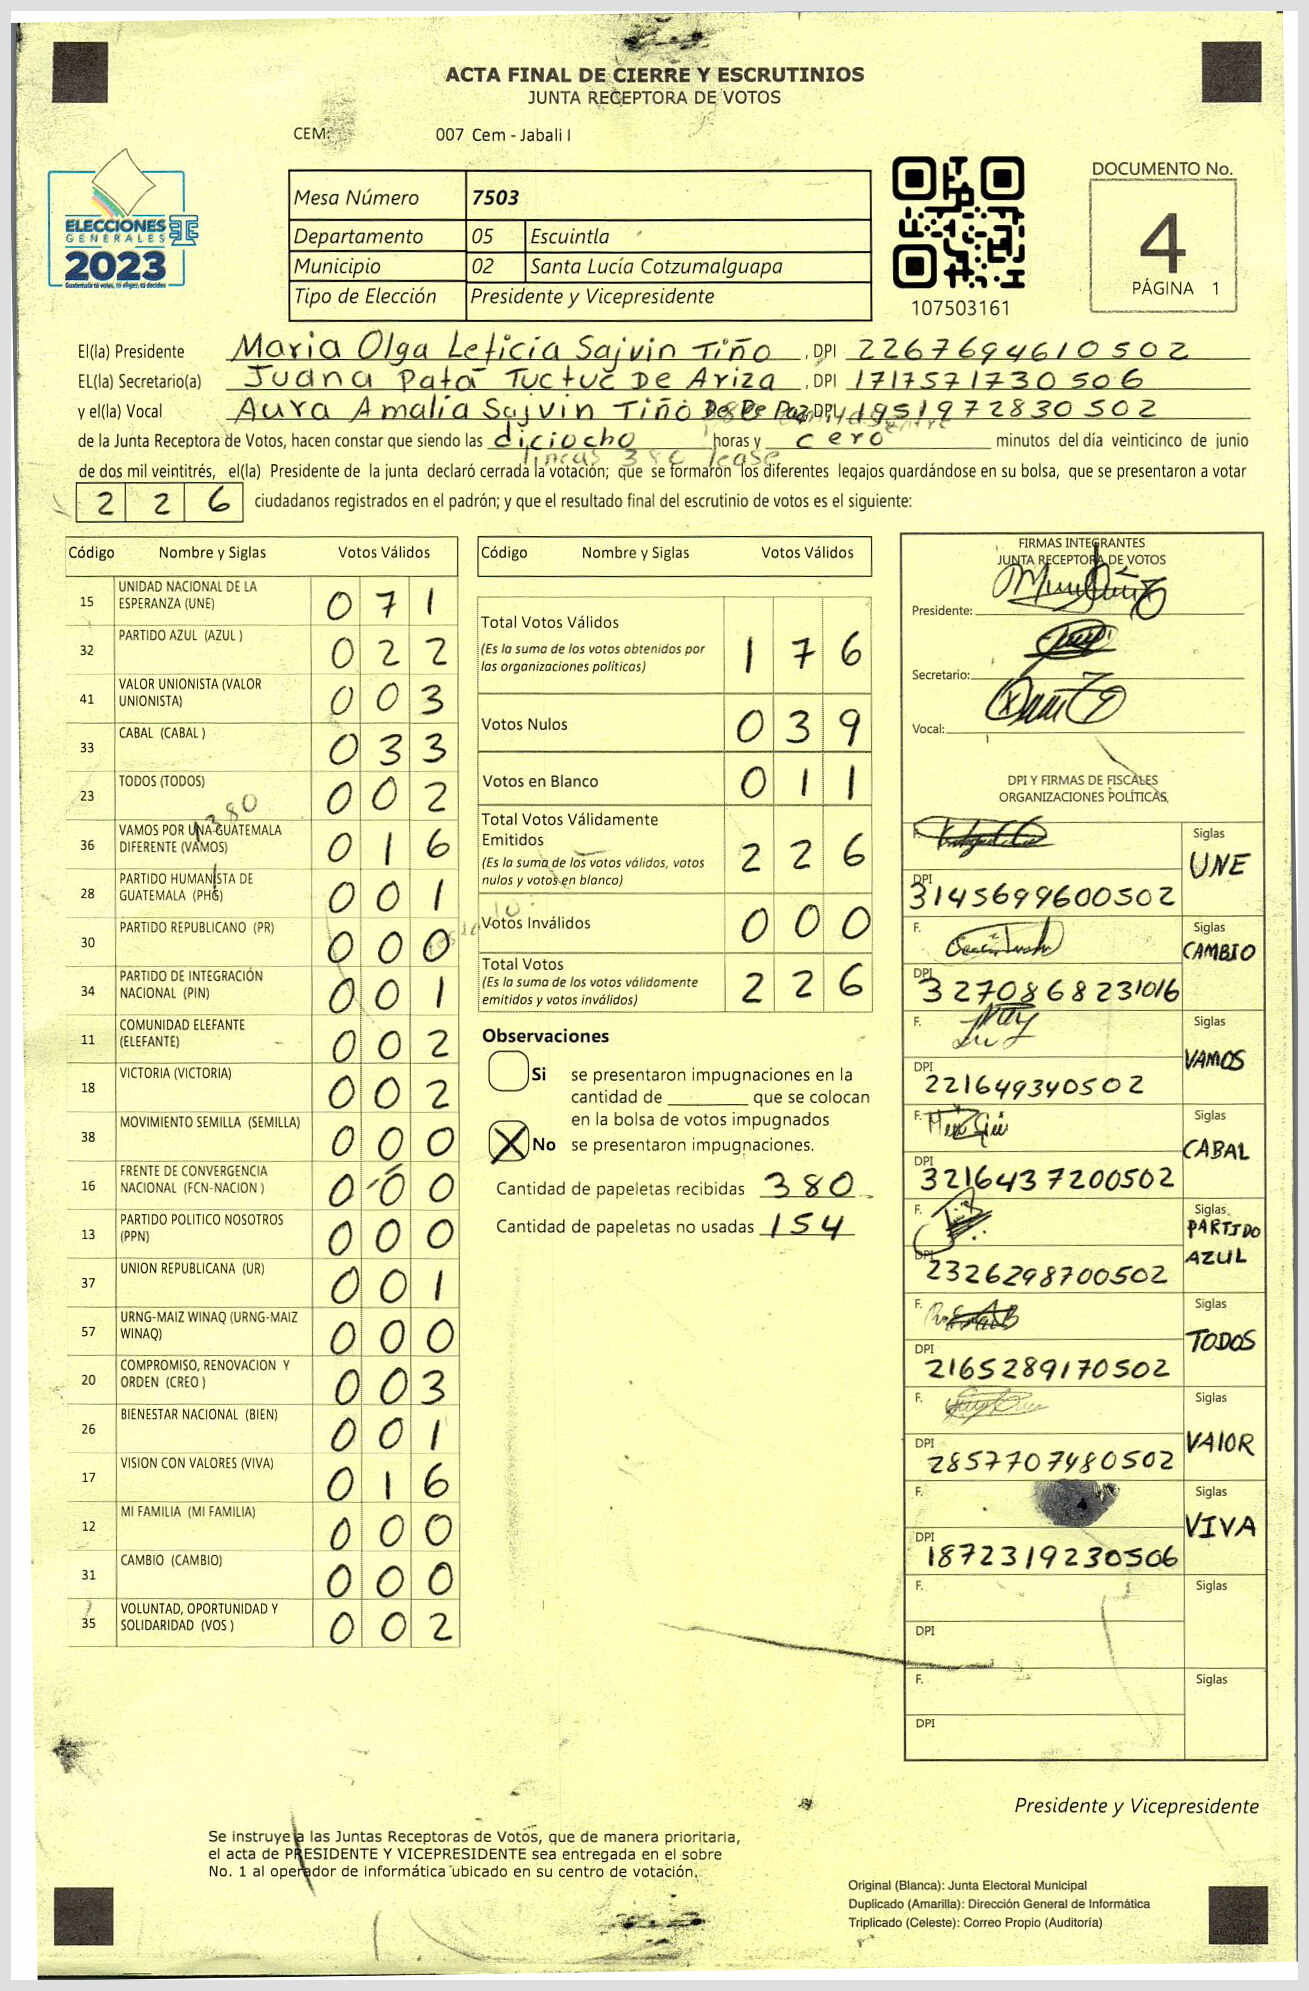 ACTA FINAL DE CIERRE Y ESCRUTINIOS
JUNTA RECEPTORA DE VOTOS
CEM: 007 Cem - Jabali I
ELECCIONES
GENERALES
2023
Guatemala tú votas, tú eliges, tú decides
Mesa Número 7503
Departamento 05 Escuintla
Municipio 02 Santa Lucía Cotzumalguapa
Tipo de Elección Presidente y Vicepresidente
107503161
DOCUMENTO No.
4
PÁGINA 1
El(la) Presidente Maria Olga Leticia Sajvin Tiño , DPI 2267694610502
EL(la) Secretario(a) Juana Patá Tuctuc De Ariza , DPI 1717571730506
y el(la) Vocal Aura Amalia Sajvin Tiño De De Paz DPI 1951972830502
de la Junta Receptora de Votos, hacen constar que siendo las diciocho horas y cero minutos del día veinticinco de junio
lineas 380 lease
de dos mil veintitrés, el(la) Presidente de la junta declaró cerrada la votación; que se formaron los diferentes legajos guardándose en su bolsa, que se presentaron a votar
226 ciudadanos registrados en el padrón; y que el resultado final del escrutinio de votos es el siguiente:
Código Nombre y Siglas Votos Válidos
15 UNIDAD NACIONAL DE LA ESPERANZA (UNE) 071
32 PARTIDO AZUL (AZUL ) 022
41 VALOR UNIONISTA (VALOR UNIONISTA) 003
33 CABAL (CABAL ) 033
23 TODOS (TODOS) 002
1380
36 VAMOS POR UNA GUATEMALA DIFERENTE (VAMOS) 016
28 PARTIDO HUMANISTA DE GUATEMALA (PHG) 001
30 PARTIDO REPUBLICANO (PR) 000
34 PARTIDO DE INTEGRACIÓN NACIONAL (PIN) 001
11 COMUNIDAD ELEFANTE (ELEFANTE) 002
18 VICTORIA (VICTORIA) 002
38 MOVIMIENTO SEMILLA (SEMILLA) 000
16 FRENTE DE CONVERGENCIA NACIONAL (FCN-NACION ) 000
13 PARTIDO POLITICO NOSOTROS (PPN) 000
37 UNION REPUBLICANA (UR) 001
57 URNG-MAIZ WINAQ (URNG-MAIZ WINAQ) 000
20 COMPROMISO, RENOVACION Y ORDEN (CREO ) 003
26 BIENESTAR NACIONAL (BIEN) 001
17 VISION CON VALORES (VIVA) 016
12 MI FAMILIA (MI FAMILIA) 000
31 CAMBIO (CAMBIO) 000
35 VOLUNTAD, OPORTUNIDAD Y SOLIDARIDAD (VOS ) 002
Código Nombre y Siglas Votos Válidos
Total Votos Válidos 176
(Es la suma de los votos obtenidos por
las organizaciones políticas)
Votos Nulos 039
Votos en Blanco 011
Total Votos Válidamente
Emitidos 226
(Es la suma de los votos válidos, votos
nulos y votos en blanco)
Votos Inválidos 000
Total Votos 226
(Es la suma de los votos válidamente
emitidos y votos inválidos)
Observaciones
Si se presentaron impugnaciones en la
cantidad de ________ que se colocan
en la bolsa de votos impugnados
X No se presentaron impugnaciones.
Cantidad de papeletas recibidas 380
Cantidad de papeletas no usadas 154
FIRMAS INTEGRANTES
JUNTA RECEPTORA DE VOTOS
Presidente:
Secretario:
Vocal:
DPI Y FIRMAS DE FISCALES
ORGANIZACIONES POLÍTICAS
F. Siglas UNE
DPI 3145699600502
F. Siglas CAMBIO
DPI 3270868231016
F. Siglas VAMOS
DPI 221649340502
F. Siglas CABAL
DPI 3216437200502
F. Siglas PARTIDO AZUL
DPI 2326298700502
F. Siglas TODOS
DPI 2165289170502
F. Siglas VAlOR
DPI 2857707480502
F. Siglas VIVA
DPI 1872319230506
F. Siglas
DPI
F. Siglas
DPI
Presidente y Vicepresidente
Se instruye a las Juntas Receptoras de Votos, que de manera prioritaria,
el acta de PRESIDENTE Y VICEPRESIDENTE sea entregada en el sobre
No. 1 al operador de informática ubicado en su centro de votación.
Original (Blanca): Junta Electoral Municipal
Duplicado (Amarilla): Dirección General de Informática
Triplicado (Celeste): Correo Propio (Auditoría)